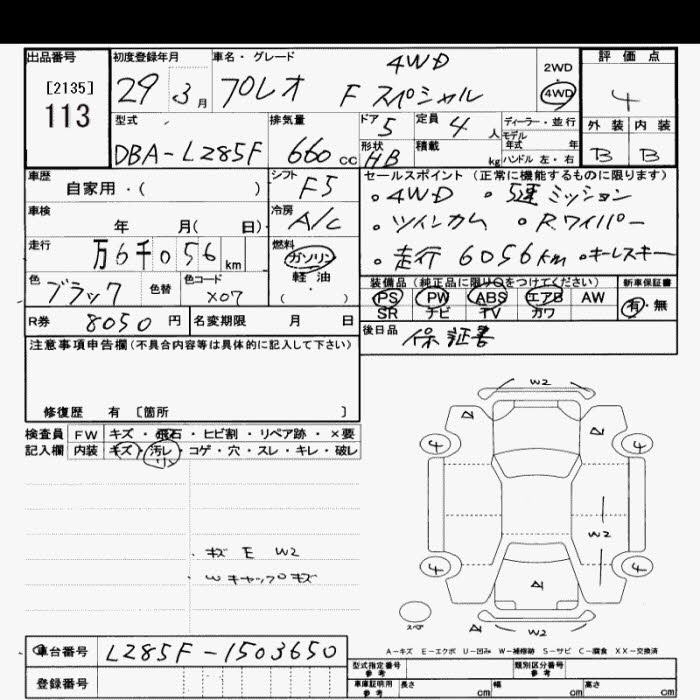 出品番号 初度登録年月 車名・グレード 4WD 2WD 評価点
[2135] 29 3月 プレオ F スペシャル 4WD 4
113
型式 排気量 ドア 5 定員 4人 ディーラー・並行 外装 内装
DBA-L285F 660cc 形状 HB 積載 kg モデル年式 年 ハンドル 左・右 B B
車歴 自家用・( ) シフト F5 セールスポイント(正常に機能するものに限ります)
・4WD ・5速ミッション
車検 年 月( 日) 冷房 A/C ・ツインカム ・Rワイパー
走行 万6千056km 燃料 ガソリン ・走行 6056km ・キーレスキー
軽油 ( ・ )
色 ブラック 色替 色コード X07 装備品(純正品に限り○をつけてください) 新車保証書
PS PW ABS エアB AW 有・無
SR ナビ TV カワ
R券 8050円 名変期限 月 日 後日品 保証書
注意事項申告欄(不具合内容等は具体的に記入して下さい)
修復歴 有 [箇所 ]
検査員 FW キズ・飛石・ヒビ割・リペア跡・×要
記入欄 内装 キズ・汚レ・コゲ・穴・スレ・キレ・破レ
小
W2
A1 A1
4 4
W2
・キズ E W2
Wキャップキズ
4 4
A1
スペア
A1 W2
A-キズ E-エクボ U-凹み W-補修跡 S-サビ C-腐食 XX-交換済
車台番号 L285F-1503650
登録番号
型式指定番号 参考 類別区分番号 参考
車庫証明用 参考 長さ cm 幅 cm 高さ cm